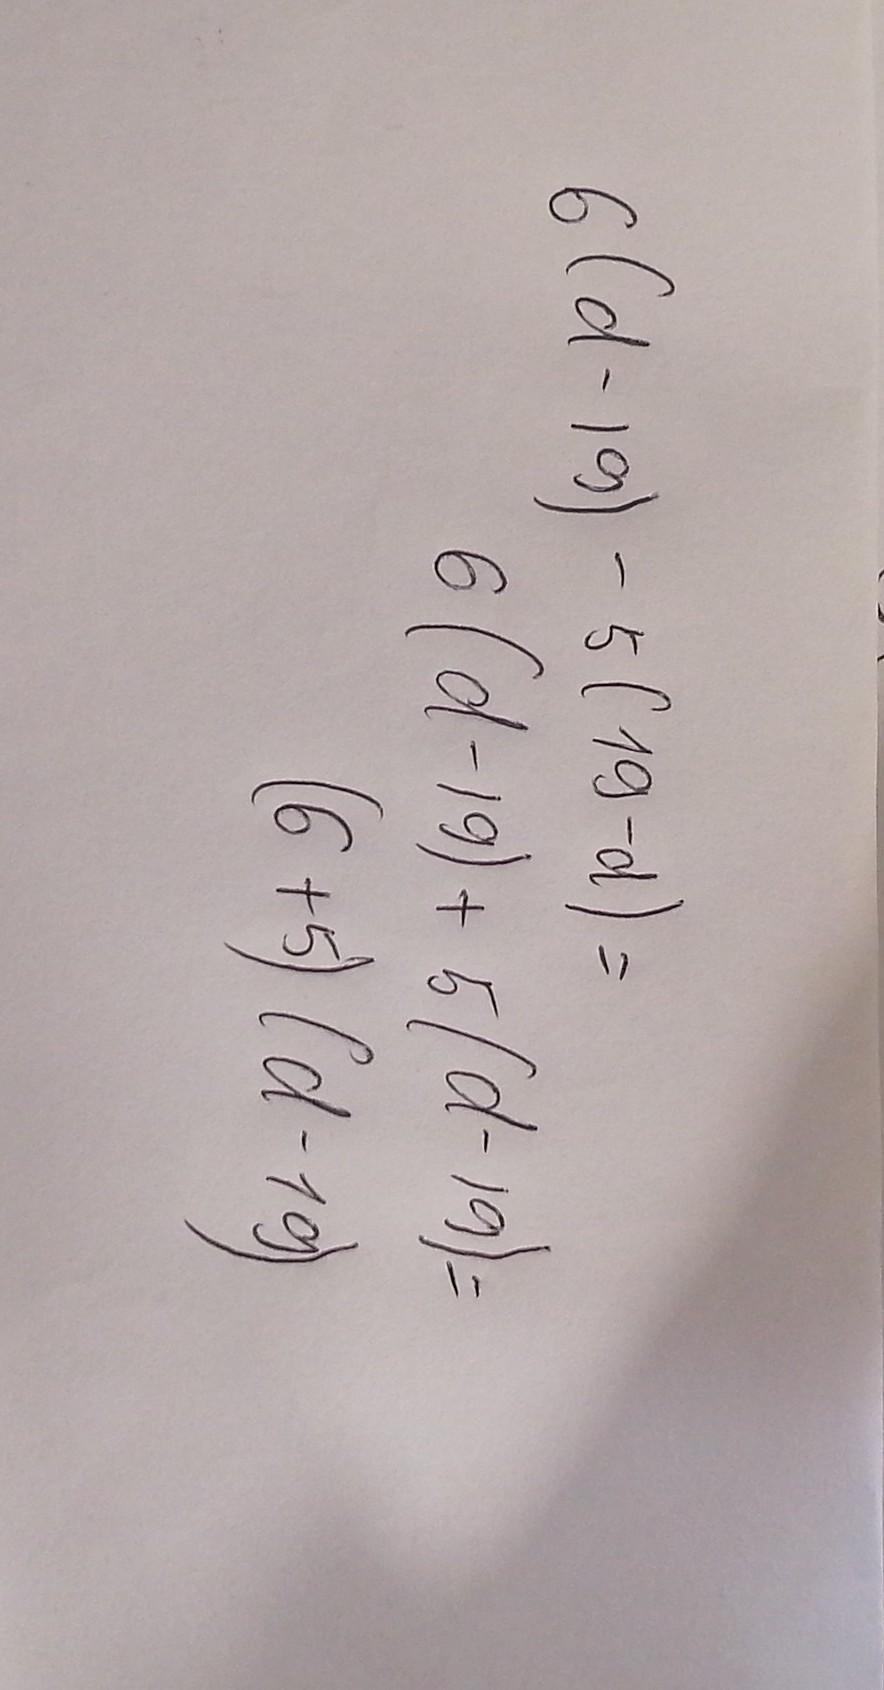 6(d-19)-5(19-d)=
6(d-19)+5(d-19)=
(6+5)(d-19)